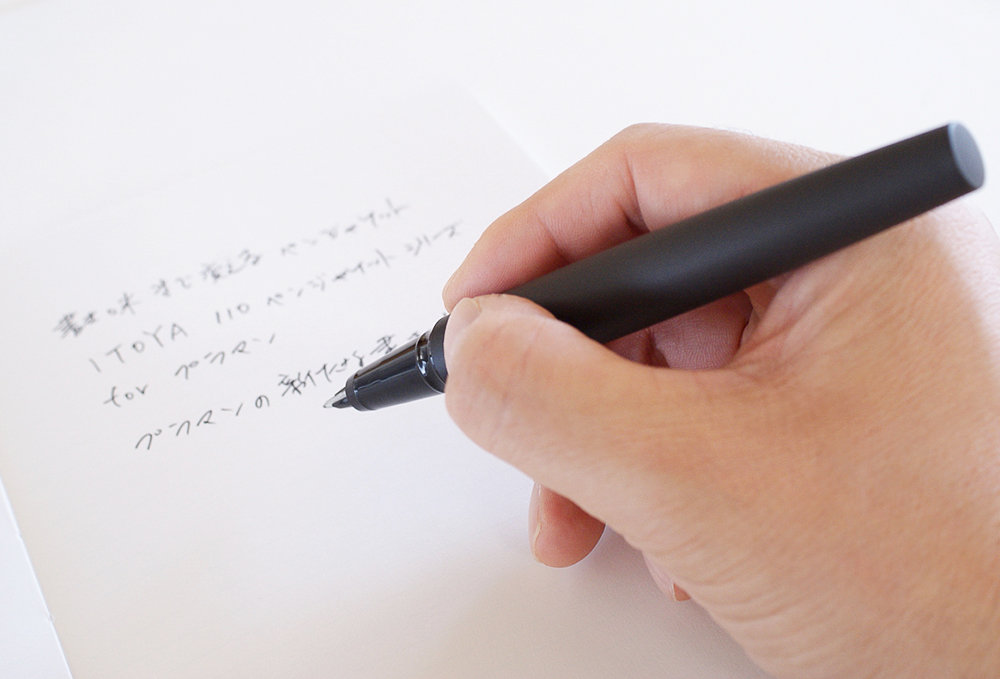 書き味まで変える ペンジャケット
ITOYA 110 ペンジャケットシリーズ
for プラマン
プラマンの新たなる書